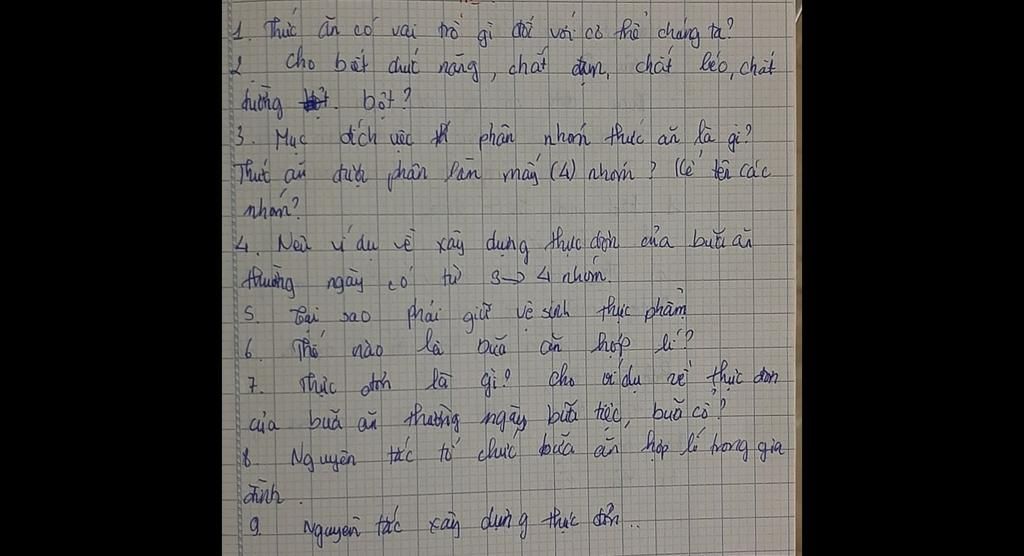 1. Thức ăn có vai trò gì đối với cơ thể chúng ta?
2. Cho biết chức năng, chất đạm, chất béo, chất
đường bột?
3. Mục đích việc phân nhóm thức ăn là gì?
Thức ăn được phân làm mấy (4) nhóm? Kể tên các
nhóm?
4. Nêu ví dụ về xây dựng thực đơn của bữa ăn
thường ngày có từ 3 → 4 nhóm.
5. Tại sao phải giữ vệ sinh thực phẩm
6. Thế nào là bữa ăn hợp lí?
7. Thực đơn là gì? Cho ví dụ về thực đơn
của bữa ăn thường ngày bữa tiệc, bữa cỗ?
8. Nguyên tắc tổ chức bữa ăn hợp lí trong gia
đình.
9. Nguyên tắc xây dựng thực đơn..